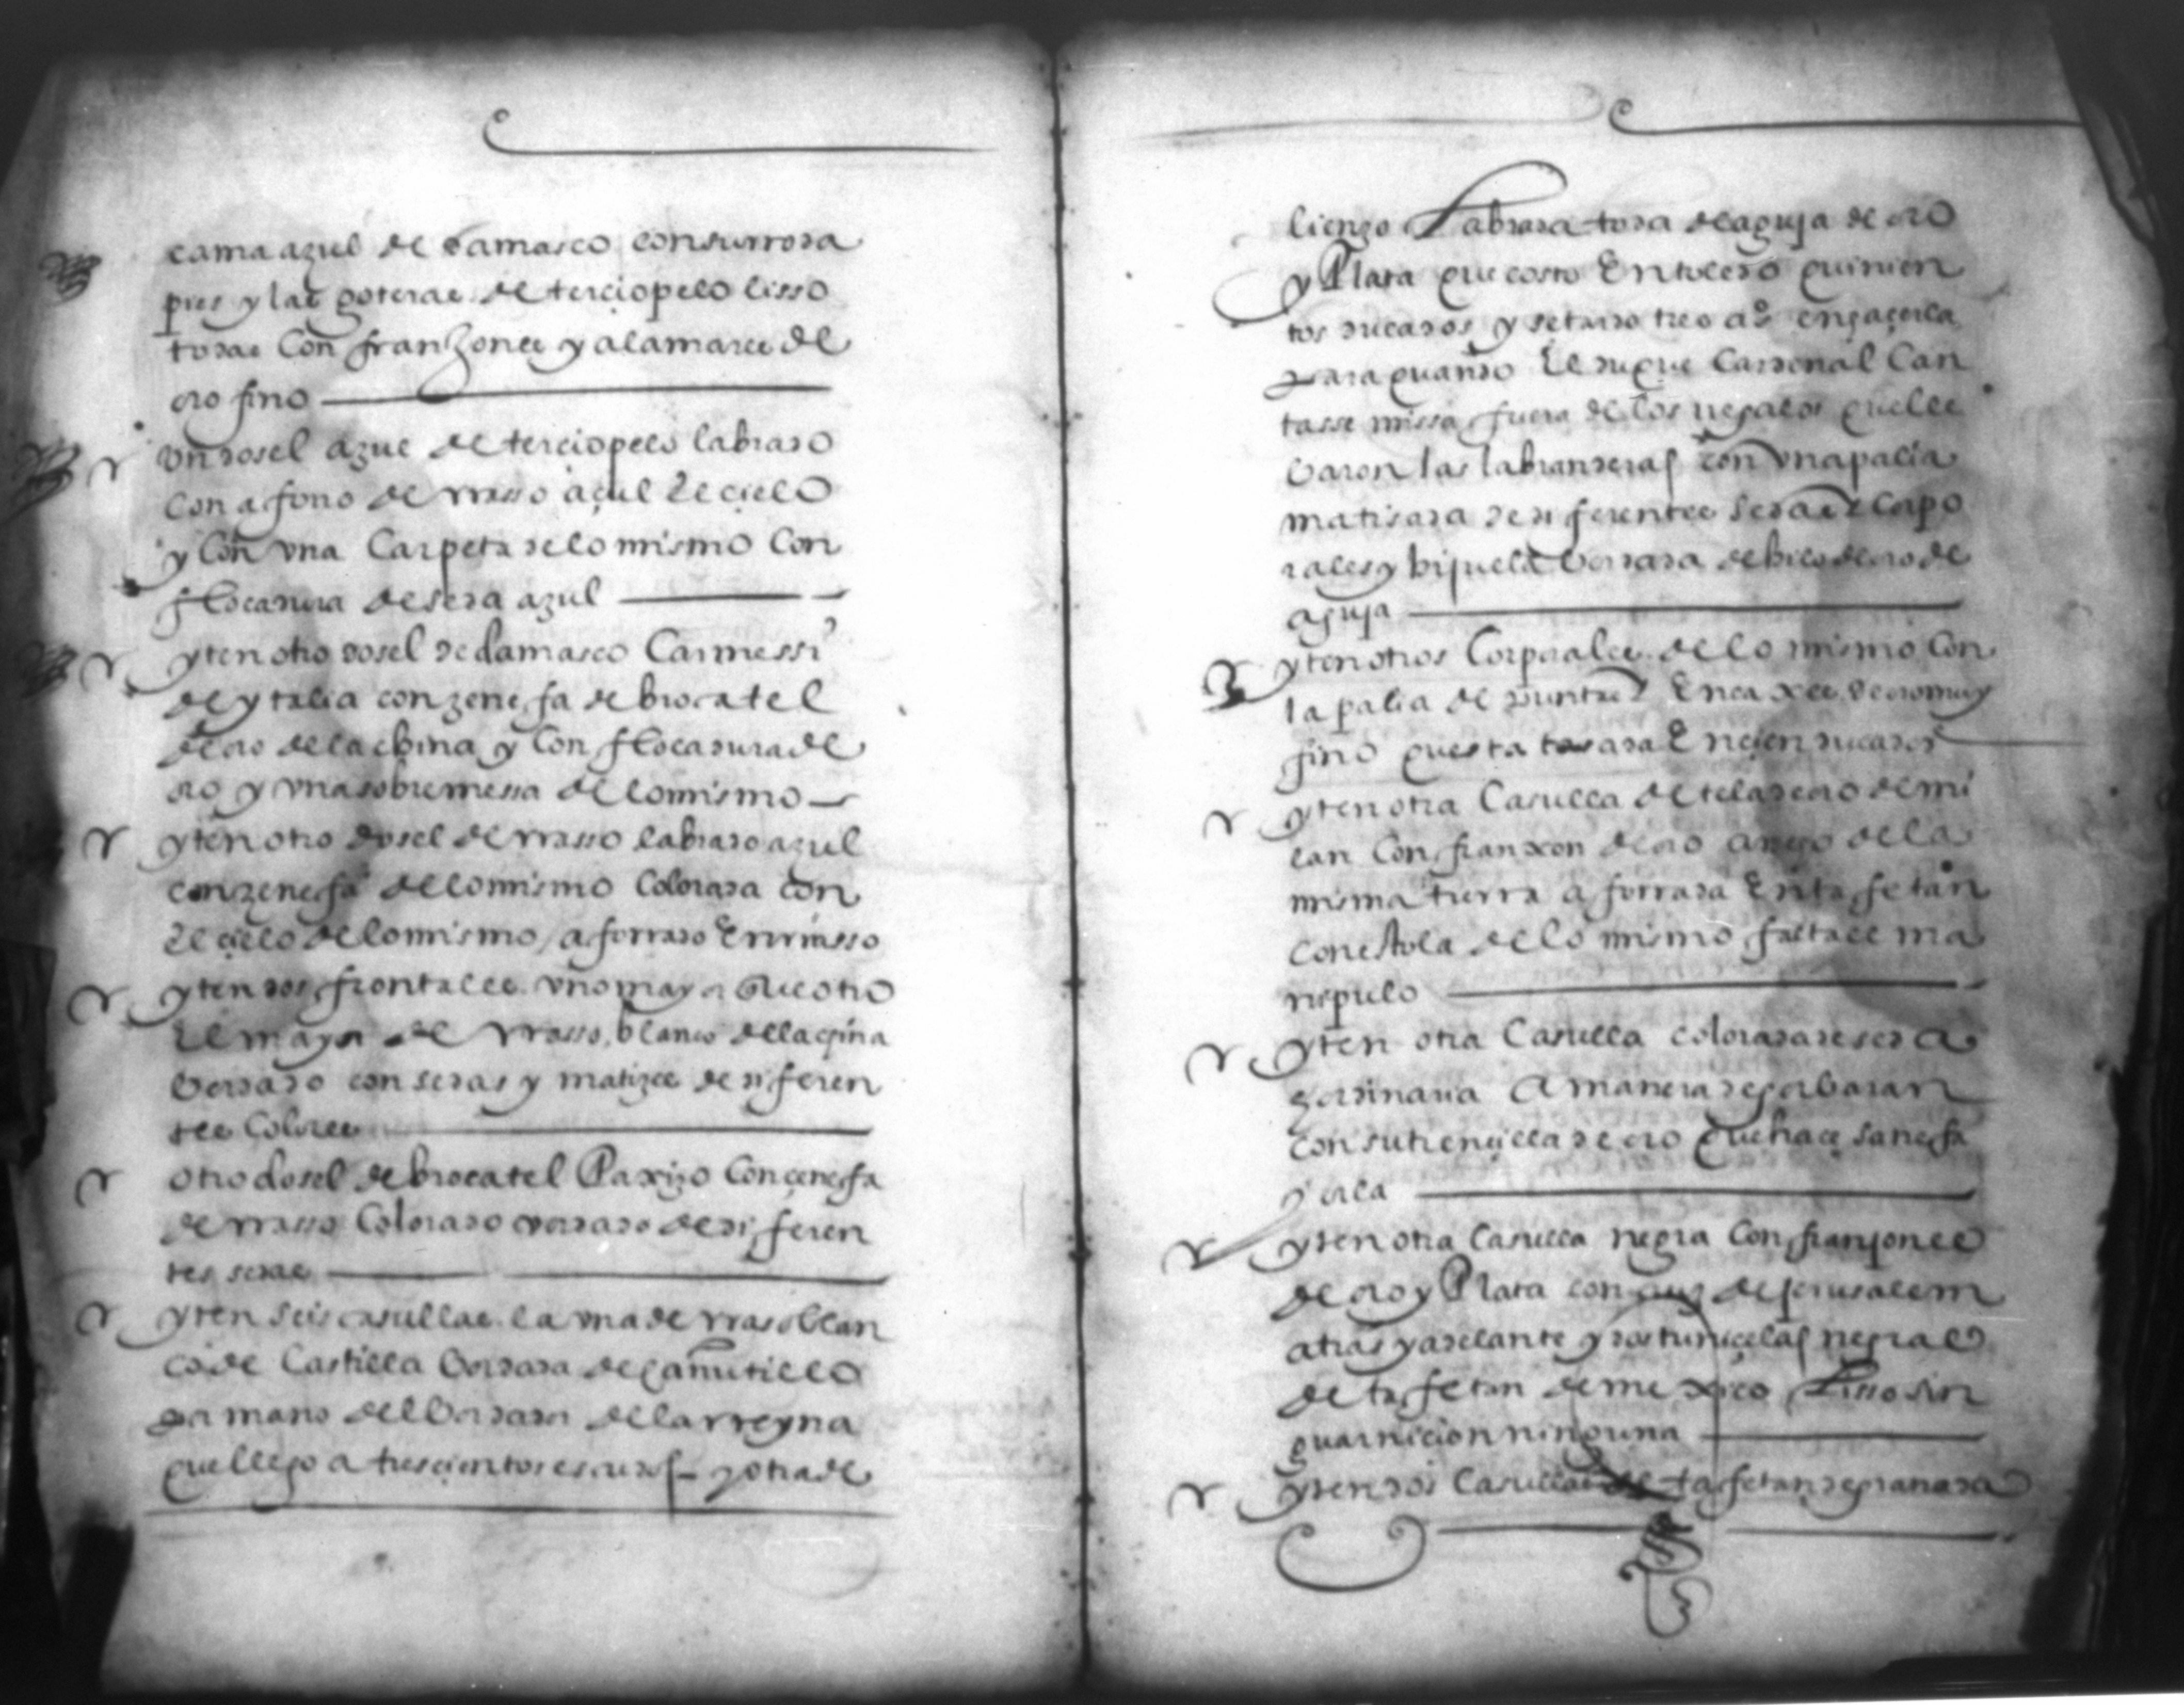 cama azul de damasco con su rroda
pies y las goteras de terciopelo lisso
todas con franzones y alamares de
oro fino
Un dosel azul de terciopelo labrado
con aforro de rrasso açul el cielo
y con una carpeta de lo mismo con
flocadura de seda azul
yten otro dosel de damasco carmessi
de ytalia con zenefa de brocatel
de oro de la china y con flocadura de
oro y una sobremessa de lo mismo
yten otro dosel de rrasso labrado azul
con zenefa de lo mismo colorada con
el cielo de lo mismo aforrado en
yten dos frontales uno mayor que otro
el mayor de rrasso blanco de la china
bordado con sedas y matizes de diferen
tes colores
otro dosel de brocatel paxizo con cenefa
de rrasso colorado vordado de diferen
tes sedas
yten seis casullas la una de rraso blan
co de castilla bordada de cañutillo
por mano del bordador de la rreyna
que llego a trescientos escudos y otra de
lienzo labrada toda de aguja de oro
y plata que costo en toledo quinien
tos ducados y se tardo tres aos en haçerla
para quando el duque cardenal can
tasse missa fuera de los regalos que lle
varon las labranderas con una palia
matisada de diferentes sedas corpo
rales y hijuela bordada de hilo de oro de
aguja
yten otros corporales de lo mismo con
la palia de puntas encaxes de oro muy
fino questa tasada en cien ducados
yten otra casulla de tela de oro de mi
lan con franxon de oro ancho de la
misma tierra aforrada en tafetan
con estola de lo mismo faltale ma
nipulo
yten otra casulla colorada de seda
hordinaria a manera de gorbaran
con su trencilla de oro que haçe sanefa
y orla
yten otra casulla negra con franjones
de oro y plata con cruz de jerusalem
atras y adelante y dos tunicelas negras
de tafetan de mexico lisso sin
guarnicion ninguna
yten dos casullas de tafetan de granada